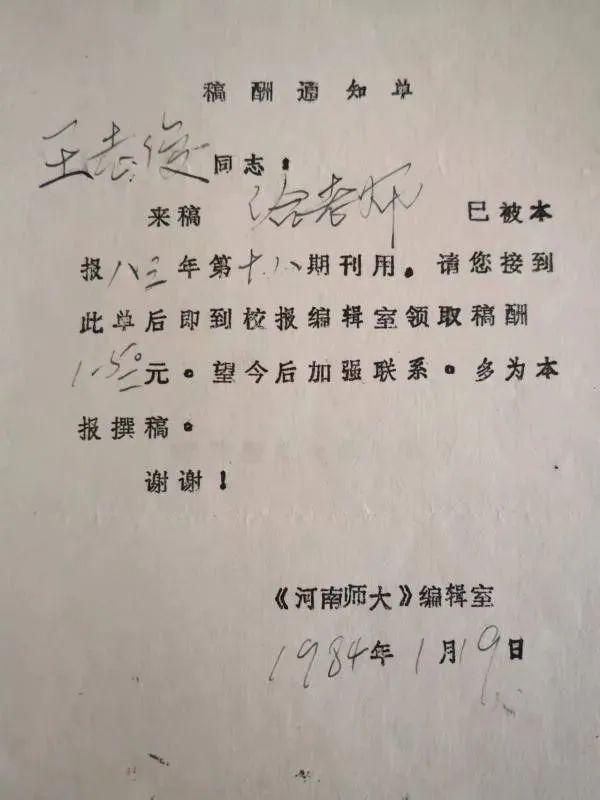 稿酬通知单
王志俊同志：
来稿 徐老师 已被本
报八三年第十八期刊用。请您接到
此单后即到校报编辑室领取稿酬
1.50元。望今后加强联系。多为本
报撰稿。
谢谢！
《河南师大》编辑室
1984年1月19日